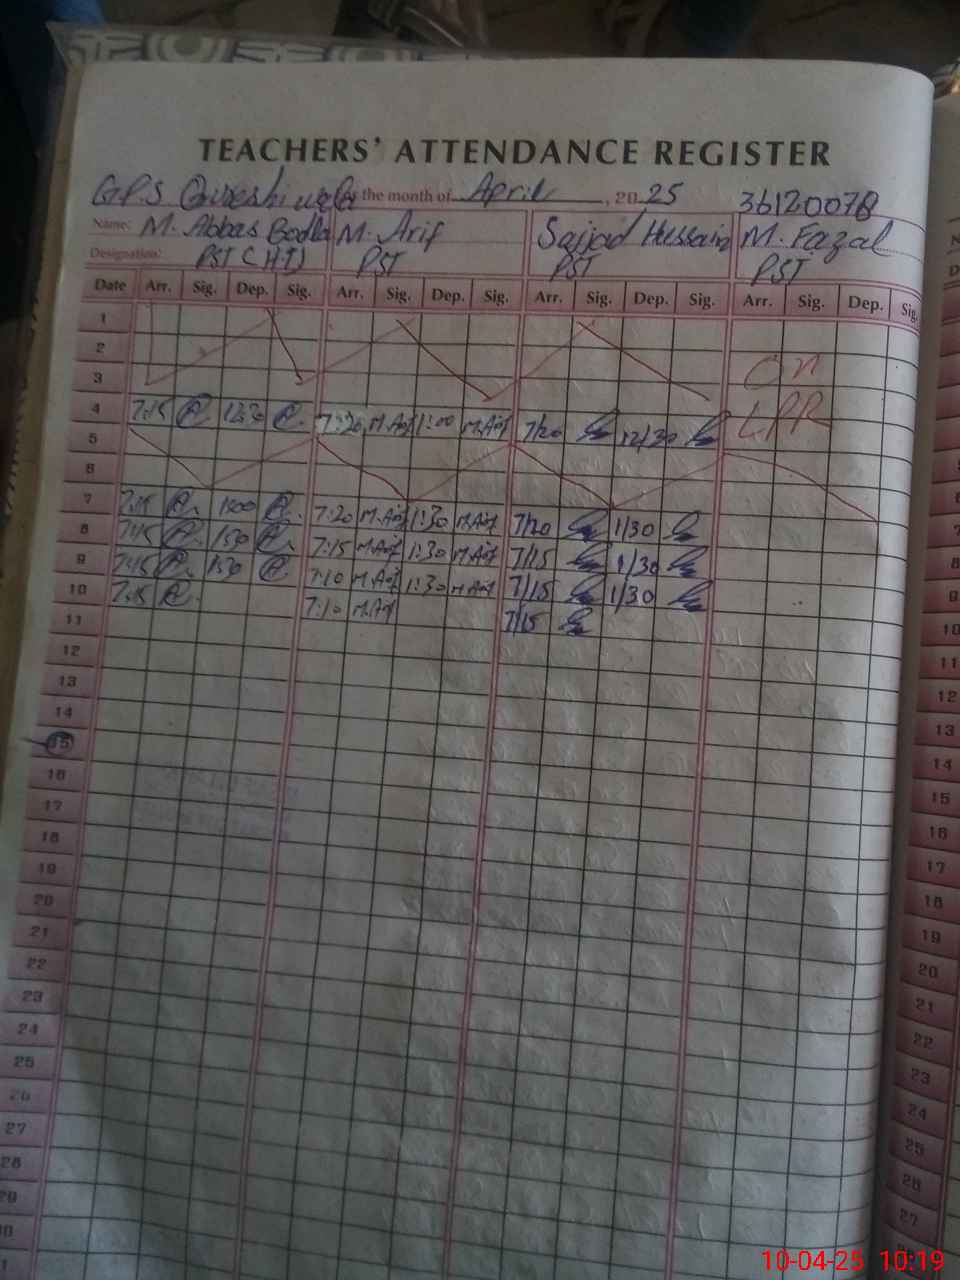 TEACHERS' ATTENDANCE REGISTER
G.P.S for the month of April, 2025 36120078
Name: M. Abbas Bodla M. Arif Sajjad Hussain M. Fazal
Designation: PST (HT) PST PST PST
Date Arr. Sig. Dep. Sig. Arr. Sig. Dep. Sig. Arr. Sig. Dep. Sig. Arr. Sig. Dep. Sig.
1
2
3 on
4 7:15 1230 7:20 M.Arif 1:00 M.Arif 7/20 12/30 LPR
5
6
7 1300 7:20 M.Arif 1:30 M.Arif 7/20 1/30
8 7:15 1:30 7:15 M.Arif 1:30 M.Arif 7/15 1/30
9 7:15 1:30 7:10 M.Arif 1:30 M.Arif 7/15 1/30
10 7:15 7:10 M.Arif 7/15
11
12
13
14
15
16
17
18
19
20
21
22
23
24
25
26
27
28
29
10-04-25 10:19